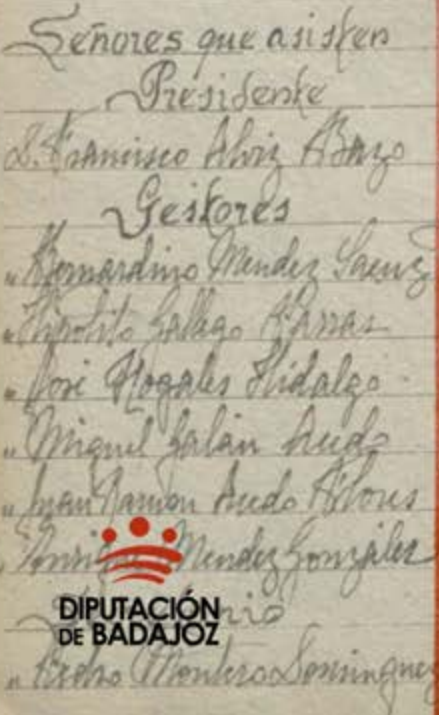 Señores que asisten
Presidente
D. Francisco Alviz
Gestores
" Bernardino Mendez Saenz
" Hipolito Gallego
" José Nogales Hidalgo
" Miguel Galán
" Juan Ramón
" Enrique Mendez González
DIPUTACIÓN
DE BADAJOZ
" Pedro Montero Dominguez